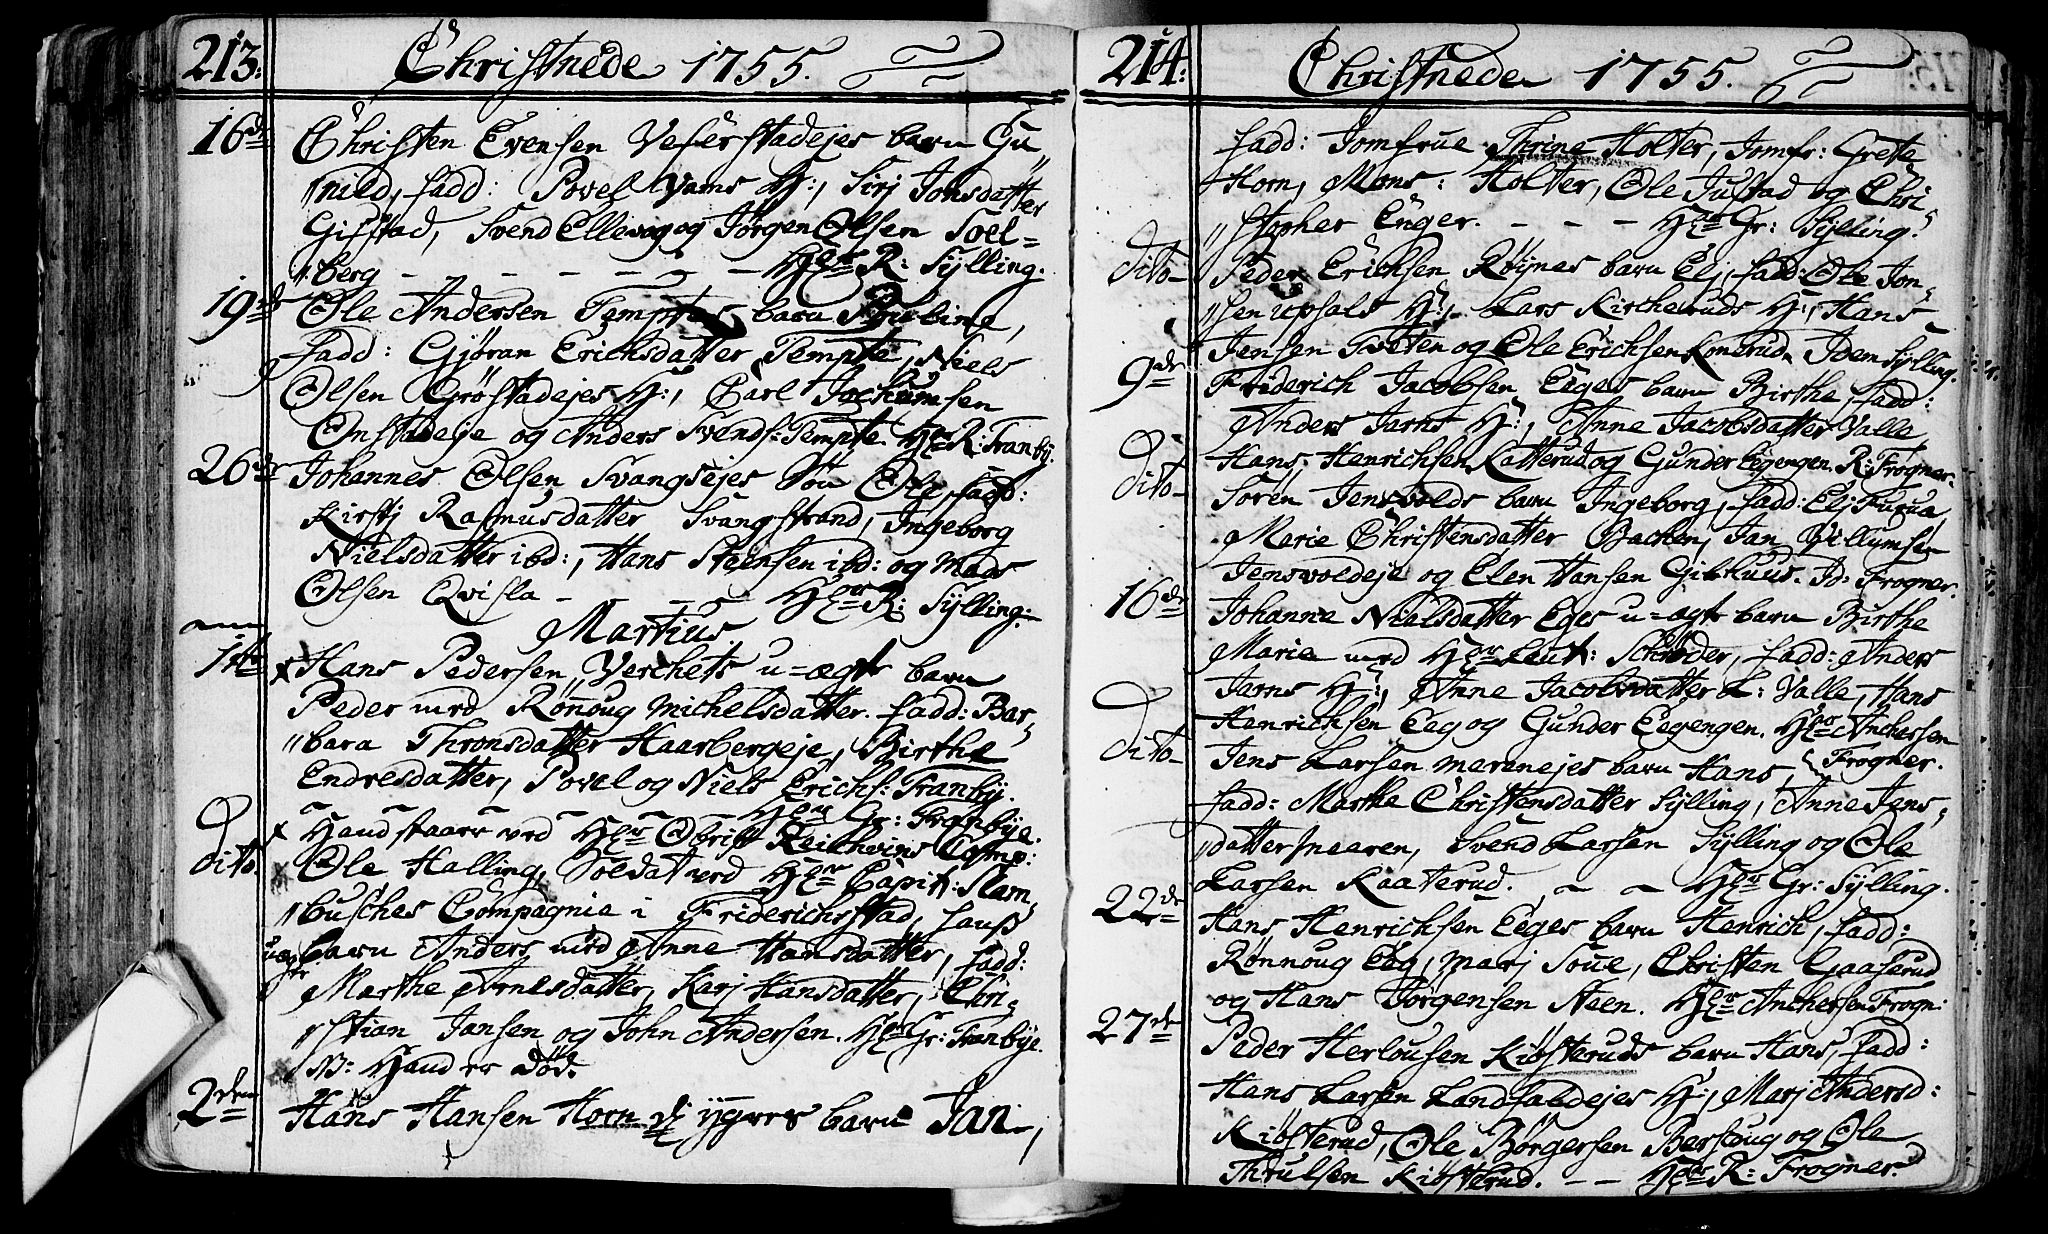 213:
Christnede 1755.
16de Christen Evensen Veserstadejes barn Gu
"nild, fadd: Povel Vams H:, Sirj Jonsdatter
Gisstad, Svend Ellevog og Jørgen Olsen Soel-
"berg - - - - - - - Hr R: Sylling.
19de Ole Andersen Temptes barn
fadd: Gjøran Erichsdatter Tempte, Niels
Olsen Grøstadejes H:, Carl Jochumsen
Onstadeje og Anders Svends: Tempte. Hr R: Tranby.
26de Johannes Olsen Svangsejes Søn Ole, fadd:
Kirstj Rasmusdatter Svangstrand, Ingeborg
Nielsdatter ibd:, Hans Steensen ibd: og Mads
Olsen Qvisla - - - - Hr R: Sylling.
Martius.
1ste x Hans Pedersen Verchets u-ægte barn
Peder med Rønnoug Michelsdatter. fadd: Bar-
"bara Thronsdatter Haarbergeje, Birthe
Endresdatter, Povel og Niels Erichs: Tranby.
- - - - Hr Gr: Tranbye.
x Hand staarr ved Hr Obrist Reichwins Comp:
Dito. Ole Halling, Soldat ved Hr Capit: Ram,
"busches Compagnie i Friderichstad, hans
uægte barn Anders med Anne Hansdatter, fadd:
Marthe Arnesdatter, Karj Hansdatter, Chri-
"stian Jansen og John Andersen. Hr Gr: Tranbye.
NB: Hand er død.
2den Hans Hansen Horn d: yngres barn Jan,
214:
Christnede 1755.
fadd: Jomfrue Thrine Holter, Jomfr: Grete
Horn, Mons: Holter, Ole Justad og Chri-
"stopher Enger. - - - Hr Gr: Sylling.
Dito- Peder Erichsen Røynes barn Elj, fadd: Ole Jon-
"sen Upsals H:, Lars Kircheruds H:, Hans
Jensen Tveten og Ole Erichsen Lonerud. Idem Sylling.
9de Friderich Jacobsen Eeges barn Birthe, fadd:
Anders Jarns H:, Anne Jacobsdatter Valle,
Hans Henrichsen Katterud og Gunder Eegengen. R: Frogner.
Dito- Søren Jensvolds barn Ingeborg, fadd: Elj Furua,
Marie Christensdatter Bachen, Jan Villumsen
Jensvoldeje og Elen Hansen Gilhuus. Id: Frogner.
16de Johanne Nielsdatter Eges u-ægte barn Birthe
Marie med Hr Leut: Schrøder, fadd: Anders
Jarns H:, Anne Jacobsdatter L: Valle, Hans
Henrichsen Eeg og Gunder Eegengen. Hr Anchersen
Frogner.
Dito- Jens Larsen Merenejes barn Hans,
fadd: Marthe Christensdatter Sylling, Anne Jens-
"datter Snearen, Svend Larsen Sylling og Ole
Larsen Kaaterud. - - Hr Gr: Sylling.
22de Hans Henrichsen Eeges barn Henrich, fadd:
Rønnoug Eeg, Marj Soue, Christen Gaaserud
og Hans Jørgensen Steen. Hr Anchersen Frogn:
27de Peder Herlousen Kiøsteruds barn Hans, fadd:
Hans Larsen Landfaldejes H:, Marj Andersd:
Kiøsterud, Ole Børgersen Berskoug og Ole
Thrulsen Kiøsterud. - - Hr R: Frogner.